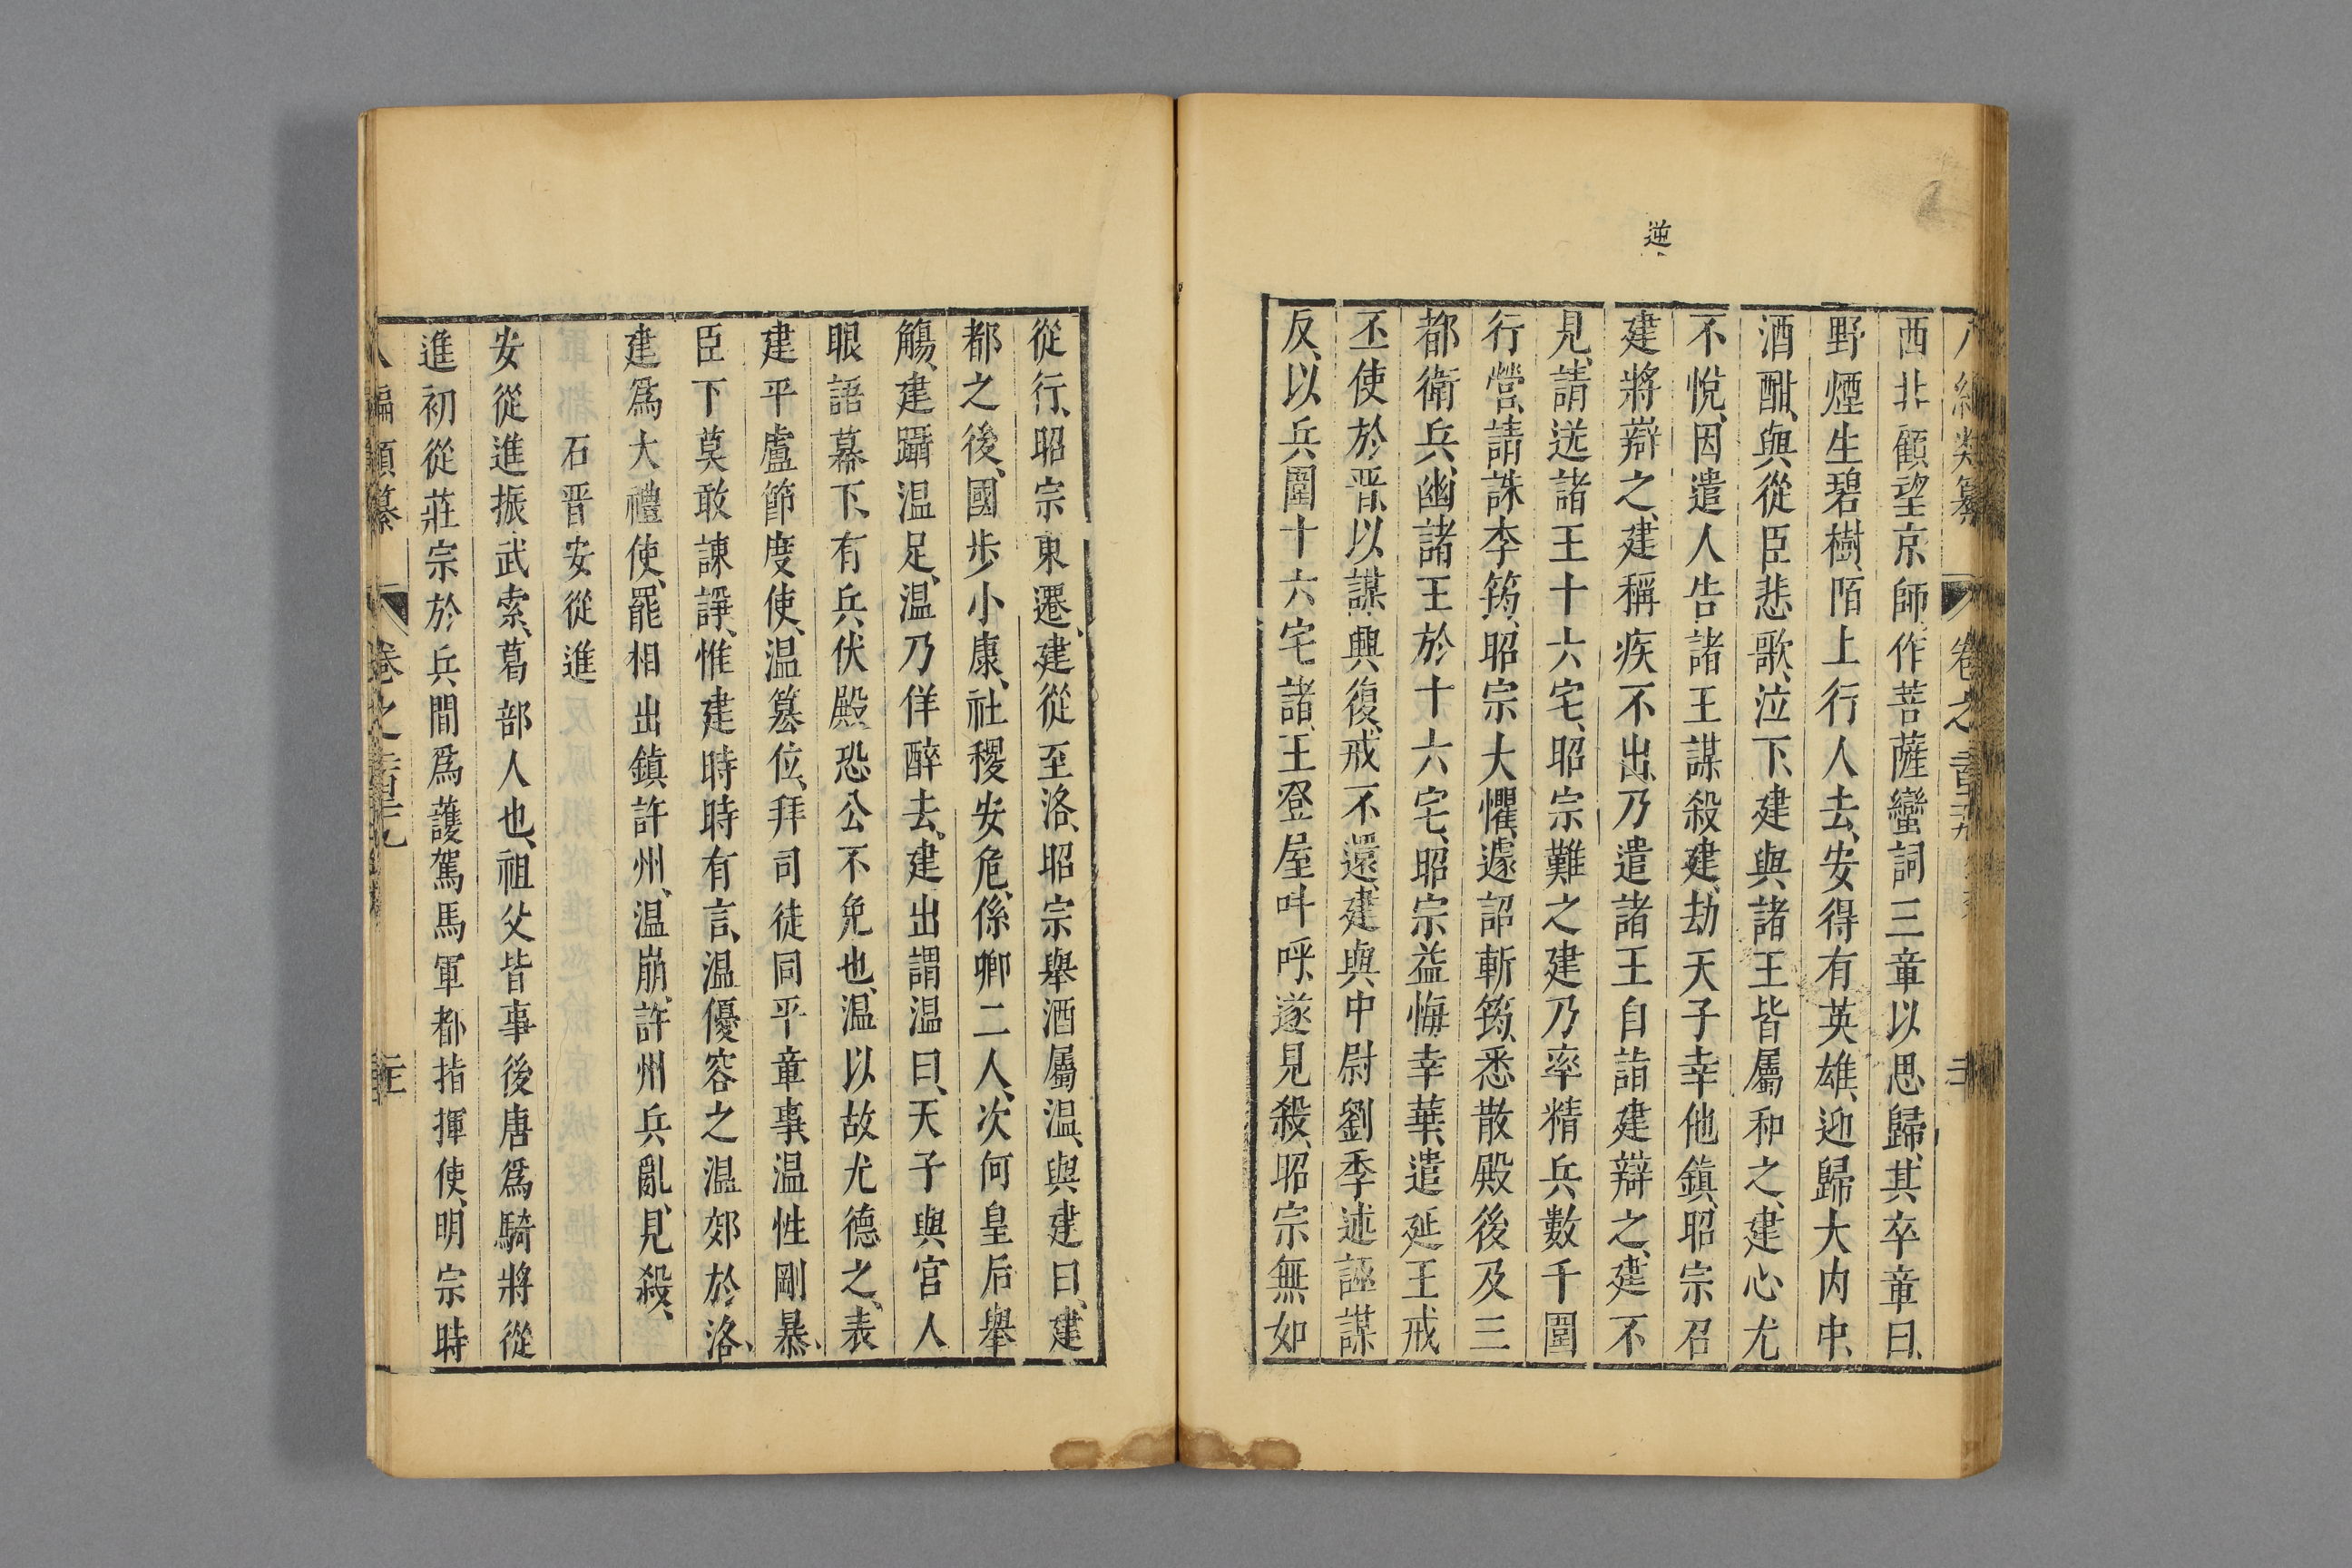 逆
西北顧望京師、作菩薩蠻詞三章以思歸、其卒章曰、
野煙生碧樹、陌上行人去、安得有英雄、迎歸大内中、
酒酣、與從臣悲歌泣下、建與諸王皆屬和之、建心尤
不悅、因遣人告諸王謀殺建、劫天子幸他鎮、昭宗召
建將辯之、建稱疾不出、乃遣諸王自詣建辯之、建不
見、請送諸王十六宅、昭宗難之建乃率精兵數千圍
行營、請誅李筠、昭宗大懼、遽詔斬筠、悉散殿後及三
都衛兵、幽諸王於十六宅、昭宗益悔幸華、遣延王戒
丕使於晋、以謀興復、戒丕還、建與中尉劉季述誣謀
反、以兵圍十六宅諸、王登屋叫呼、遂見殺、昭宗無如
從行、昭宗東遷、建從至洛、昭宗舉酒屬温、與建曰、建
都之後、國步小康、社稷安危、係卿二人、次何皇后舉
觴、建躡温足、温乃佯醉去、建出謂温曰、天子與宫人
眼語幕下、有兵、伏殿恐公不免也、温以故尤德之、表
建平盧節度使、温篡位、拜司徒同平章事、温性剛暴、
臣下莫敢諫諍、惟建時時有言、温優容之温郊於洛、
建爲大禮使、罷相出鎮許州、温崩、許州兵亂、見殺、
石晋安從進
安從進振武索葛部人也、祖父皆事後唐爲騎將從
進初從莊宗於兵間爲護駕馬軍都指揮使、明宗時